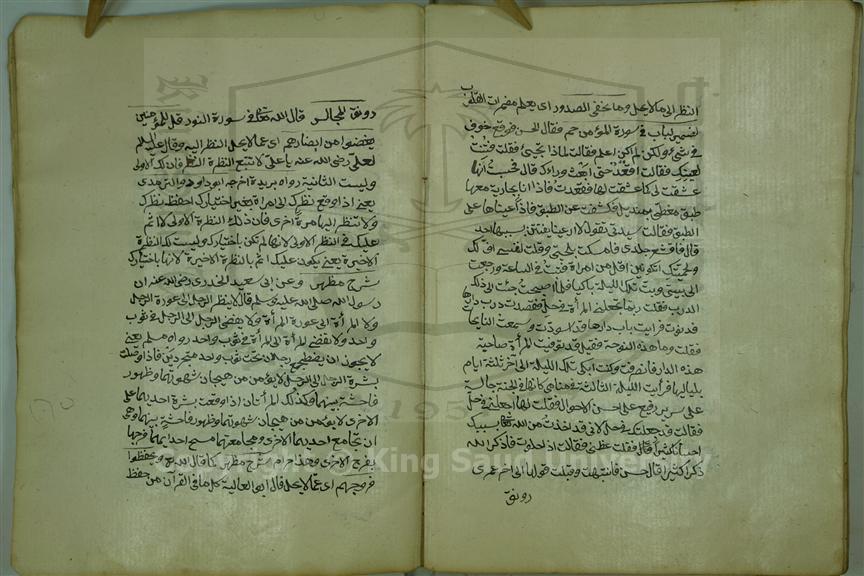 النظر الى ما لا يحل وما تخفى الصدور اى يعلم مضمرات القلوب
تفسير لباب فى سورة المؤمن حم فقال الحسن فوقع خوف
فى شىء ولكن لم اكن اعلم فقالت لماذا تجىء فقلت فتنت
لعينيك فقالت اقعد حتى ابعث مرادك قال فحسبت انها
عشقت لى كما عشقت لها فقعدت فاذا انا بجارية معها
طبق مغطى بمنديل فكشفت عن الطبق فاذا عيناها على
الطبق فقالت سيدتى تقول لا اريد عينا يفتتن بسببها احد
قال فاقشعر جلدى فامسكت بلحيتى وقلت لنفسى اف لك
ولحيتك اتكونين اقل من امراة فتبت فى الساعة ورجعت
الى بيتى وبت تلك الليلة باكيا فلما اصبحت جئت الى ذلك
الدرب فقلت ربما تجعلنى المرأة فى حل فقصدت درب دارها
فدنوت فرايت باب دارها قد اسودت وسمعت النايحات
فقلت وما هذه النوحة فقيل قد توفيت المرأة صاحبة
هذه الدار فانصرفت وكنت ابكى تلك الليلة الى آخر ثلثة ايام
بلياليها فرأيت الليلة الثالثة فى منامى كانها فى الجنة جالسة
على سرير رفيع على احسن الاحوال فقلت لها اجعلنى فى حل
فقالت قد جعلتك فى حل لانى قد اخذت من الله تعالى بسببك
احسانا كثيرا قال فقلت عظنى فقالت اذا خلوت فاذكر الله
ذكرا كثيرا قال الحسن فانتبهت وقبلت قولها الى آخر عمرى
رونق
رونق المجالس قال الله تعالى فى سورة النور قل للمؤمنين
يغضوا من ابصارهم اى عما لا يحل النظر اليه وقال عليه السلام
لعلى رضى الله عنه يا على لا تتبع النظرة النظرة فان لك الاولى
وليست الثانية رواه بريدة اخرجه ابو داود والترمذى
يعنى اذا وقع نظرك الى امرأة بغير اختيارك احفظ نظرك
ولا تنظر اليها مرة اخرى فان ذلك النظرة الاولى لا اثم
عليك فى النظر الاولى لانها لم تكن باختيارك وليست لك النظرة
الاخيرة يعنى يكون عليك اثم بالنظرة الاخيرة لانها باختيارك
شرح مظهر وعن ابى سعيد الخدرى رضى الله عنه ان
رسول الله صلى الله عليه وسلم قال لا ينظر الرجل الى عورة الرجل
ولا المرأة الى عورة المرأة ولا يفضى الرجل الى الرجل فى ثوب
واحد ولا تفضى المرأة الى المرأة فى ثوب واحد رواه مسلم يعنى
لا يجوز ان يضطجع رجلان تحت ثوب واحد متجردين فاذا وصلت
بشرة الرجل الى الرجل لا يؤمن من هيجان شهوتهما وظهور
فاحشة بينهما وكذلك المرأتان اذا وقعت بشرة احديهما على
الاخرى لا يؤمن من هيجان شهوتهما وظهور فاحشة بينهما وهى
ان تجامع احديهما الاخرى ومجامعتهما مسح احديهما فرجها
بفرج الاخرى وهذا حرام شرح مظهر ثم قال الله تعالى ويحفظوا
فروجهم اى عما لا يحل قال ابو العالية كل ما فى القرآن من حفظ
King Saud University
195